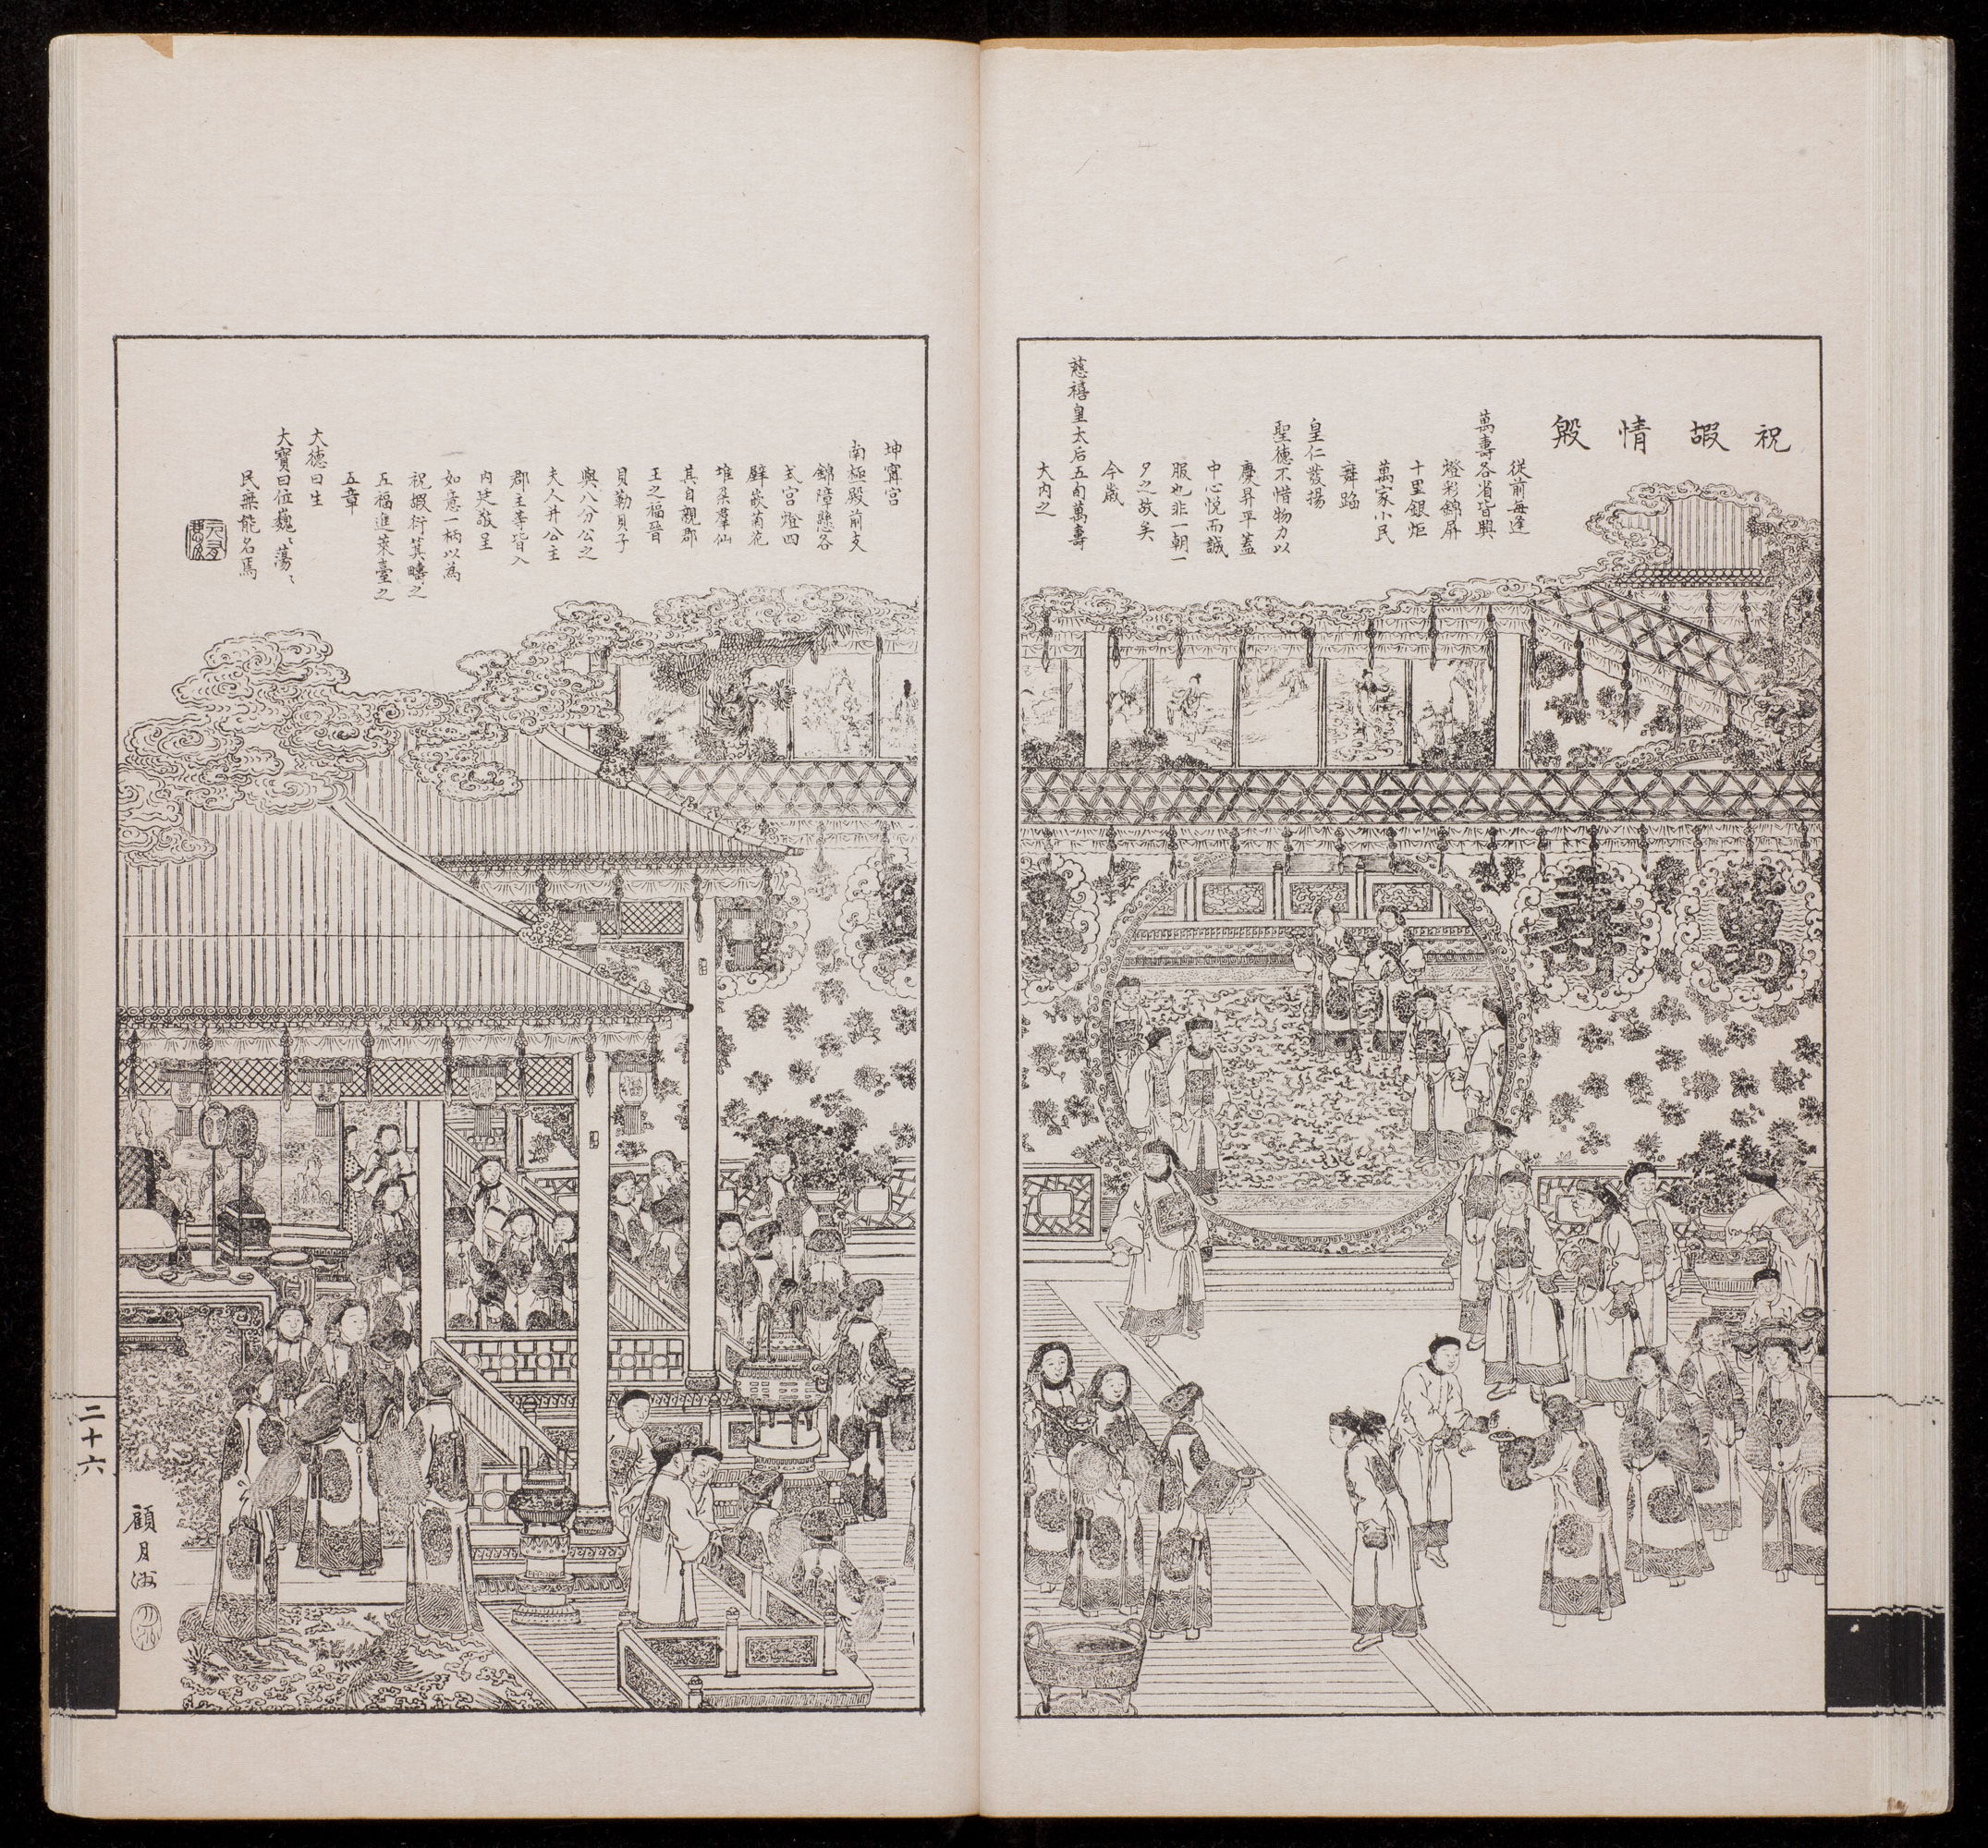 祝嘏情殷
從前每逢
萬壽各省皆興
燈彩錦屏
十里銀炬
萬家小民
舞蹈
皇仁發揚
聖德不惜物力以
慶昇平蓋
中心悅而誠
服也非一朝一
夕之故矣
今歲
慈禧皇太后五旬萬壽
大內之
坤寧宮
南極殿前支
錦障懸各
式宮燈四
壁嵌菊花
堆朵羣仙
其自親郡
王之福晉
貝勒貝子
與八分公之
夫人并公主
郡主等皆入
內廷敬呈
如意一柄以為
祝嘏衍箕疇之
五福進萊臺之
五章
大德曰生
大寶曰位巍〻蕩〻
民無能名焉
壽
萬
二十六
顧月洲